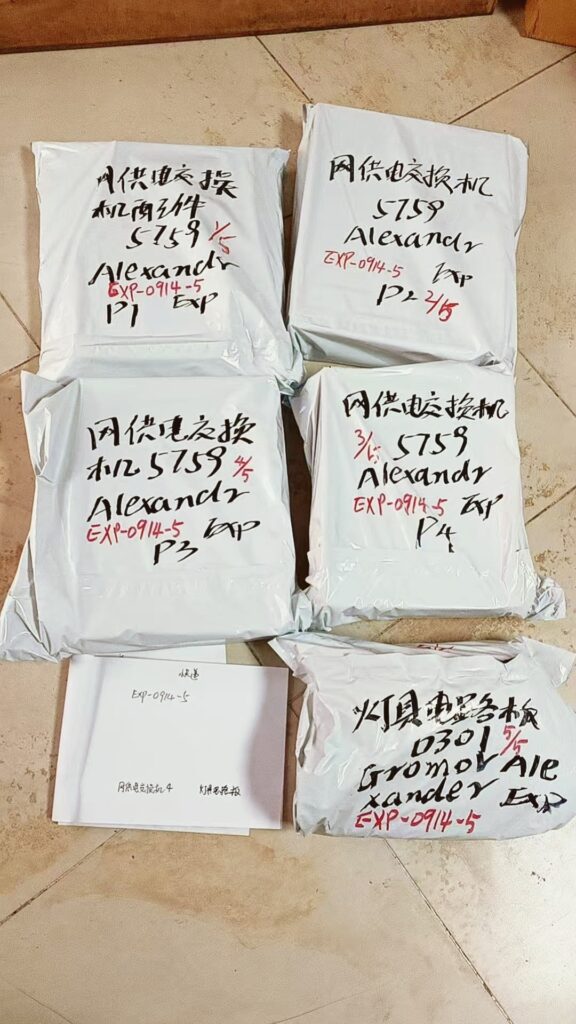 网供电交换
机两3件
5759 1/5
Alexandr
EXP-0914-5
P1 Exp
网供电交换机
5759
Alexandr
EXP-0914-5 Exp
P2 2/5
网供电交换
机 5759 4/5
Alexandr
EXP-0914-5 Exp
P3
网供电交换机
3/5 5759
Alexandr
EXP-0914-5 Exp
P4
快递
EXP-0914-5
网供电交换机4 灯具电路板
灯具电路板
0301 5/5
Gromov Ale
xander Exp
EXP-0914-5